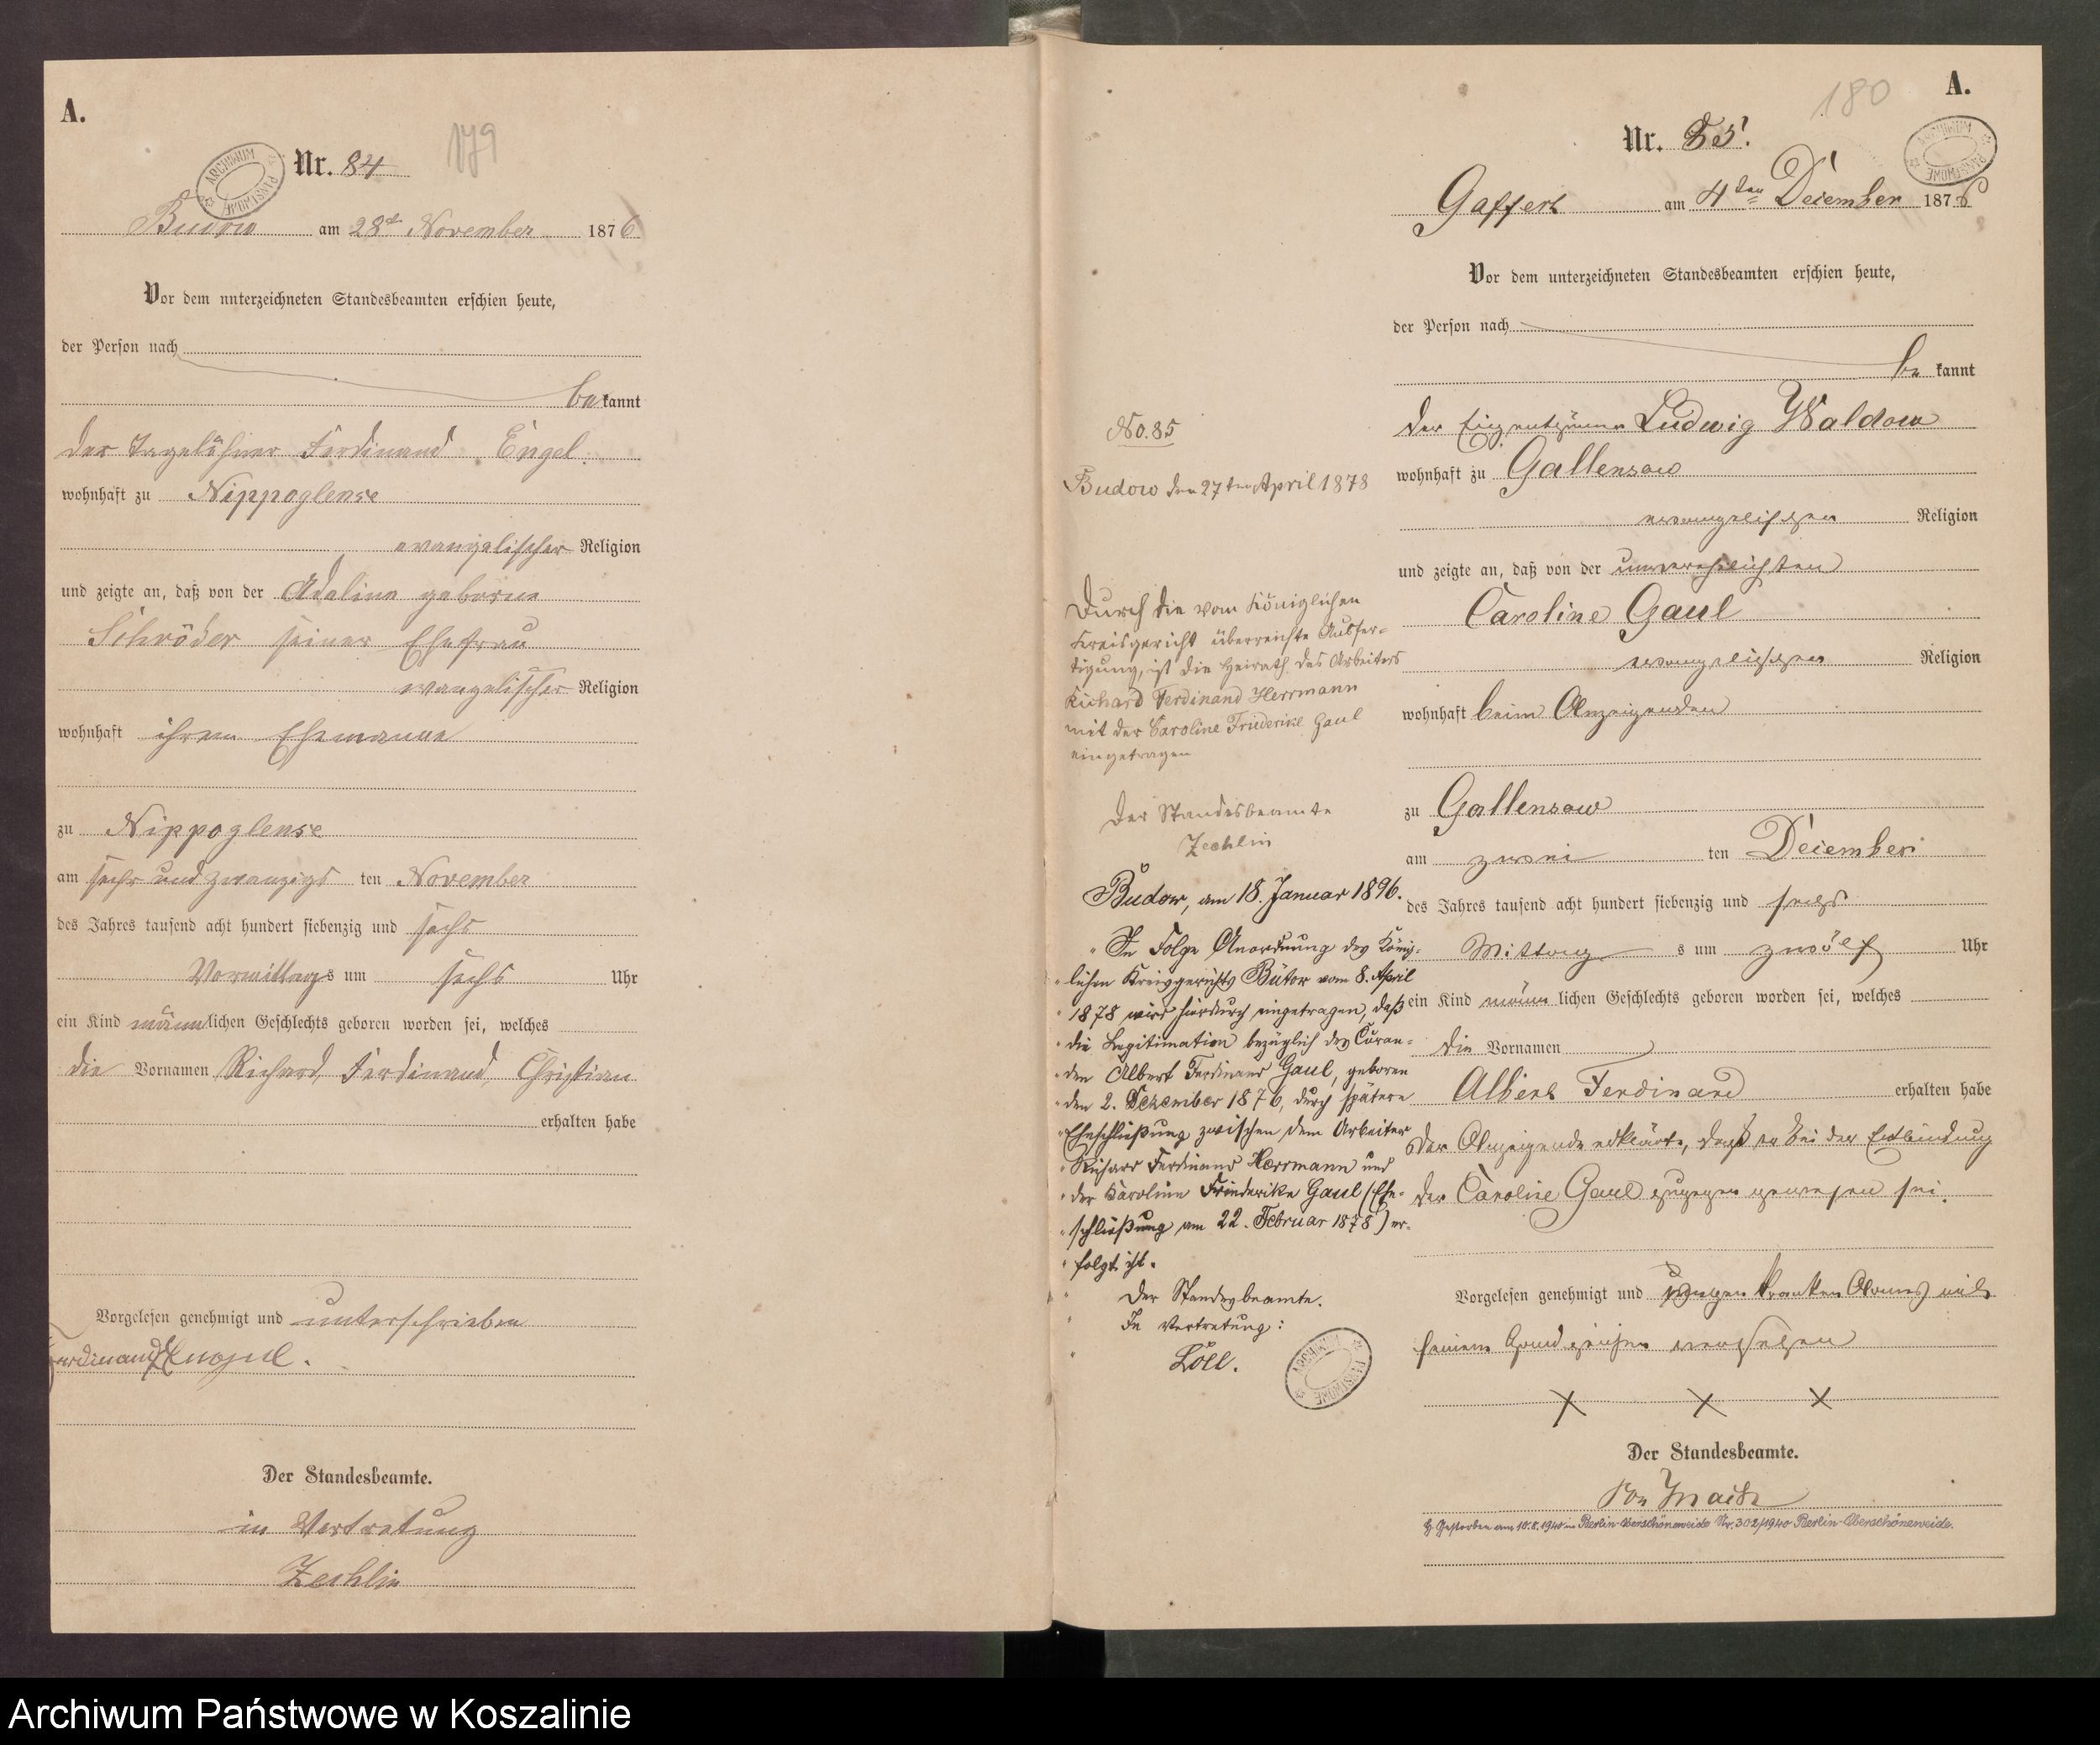 A.
179
Nr. 84
Budow am 28t November 1876
Vor dem unterzeichneten Standesbeamten erschien heute,
der Person nach
be kannt
der Tagelöhner Ferdinand Engel
wohnhaft zu Nippoglense
evangelischer Religion
und zeigte an, daß von der Adeline geborne
Schröder seiner Ehefrau
evangelischer Religion
wohnhaft ihrem Ehemanne
zu Nippoglense
am sechs und zwanzigs ten November
des Jahres tausend acht hundert siebenzig und sechs
Vormittags um sechs Uhr
ein Kind männlichen Geschlechts geboren worden sei, welches
die Vornamen Richard, Ferdinand, Christian
erhalten habe
Vorgelesen genehmigt und unterschrieben
Ferdinand Engel.
Der Standesbeamte.
in Vertretung
Zechlin
180
A.
Nr. 85.
Gaffert am 4ten Dezember 1876
Vor dem unterzeichneten Standesbeamten erschien heute,
der Person nach
be kannt
der Eigenthümer Ludwig Waldow
wohnhaft zu Gallensow
evangelischen Religion
und zeigte an, daß von der unverehelichten
Caroline Gaul
evangelischen Religion
wohnhaft beim Anzeigenden
zu Gallensow
am zwei ten Dezember
des Jahres tausend acht hundert siebenzig und sechs
Mittag s um zwölf Uhr
ein Kind männlichen Geschlechts geboren worden sei, welches
die Vornamen
Albert Ferdinand erhalten habe
Der Anzeigende erklärte, daß er bei der Entbindung
der Caroline Gaul zugegen gewesen sei.
Vorgelesen genehmigt und wegen kranken Armes mit
seinem Handzeichen versehen
X X X
Der Standesbeamte.
von
Gestorben am 10.8.1940 in Berlin-Oberschöneweide Nr. 302/1940 Berlin-Oberschöneweide.
No. 85
Budow den 27ten April 1878
Durch die vom Königlichen
Kreisgericht überreichte Ausfer=
tigung, ist die Heirath des Arbeiters
Richard Ferdinand Herrmann
mit der Caroline Friederike Gaul
eingetragen
Der Standesbeamte
Zechlin
Budow, am 18. Januar 1896.
In Folge Anordnung des König=
lichen Kreisgerichts Bütow vom 8. April
1878 wird hierdurch eingetragen, daß
die Legitimation bezüglich des Curan=
den Albert Ferdinand Gaul, geboren
den 2. Dezember 1876, durch spätere
Eheschließung zwischen dem Arbeiter
Richard Ferdinand Herrmann und
der Karoline Friederike Gaul (Ehe=
schließung am 22. Februar 1878) er=
folgt ist.
Der Standesbeamte.
In Vertretung:
Löll.
ARCHIWUM PAŃSTWOWE
ARCHIWUM PAŃSTWOWE
ARCHIWUM PAŃSTWOWE
Archiwum Państwowe w Koszalinie